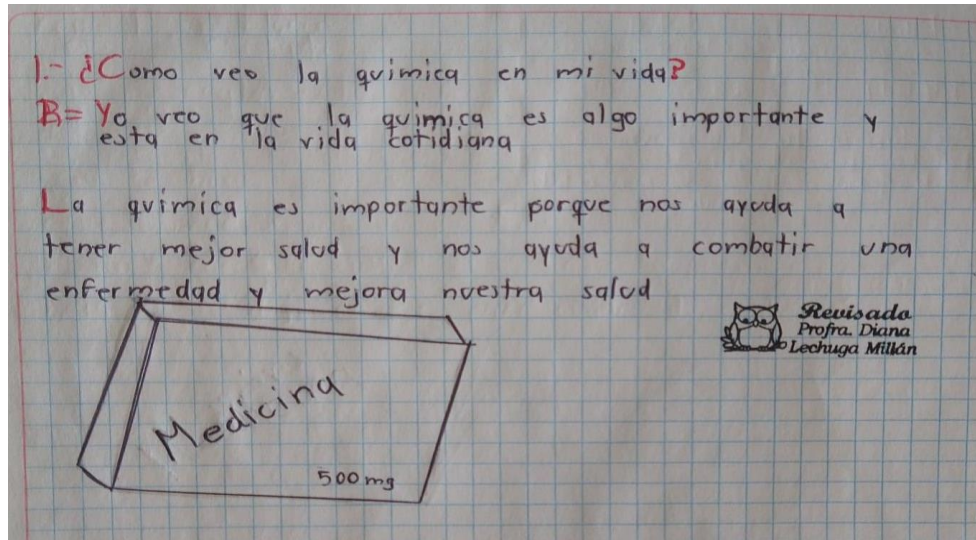 1.- ¿Como veo la quimica en mi vida?
R= Yo veo que la quimica es algo importante y
esta en la vida cotidiana
La quimica es importante porque nos ayuda a
tener mejor salud y nos ayuda a combatir una
enfermedad y mejora nuestra salud
Revisado
Profra. Diana
Lechuga Millán
Medicina
500 mg